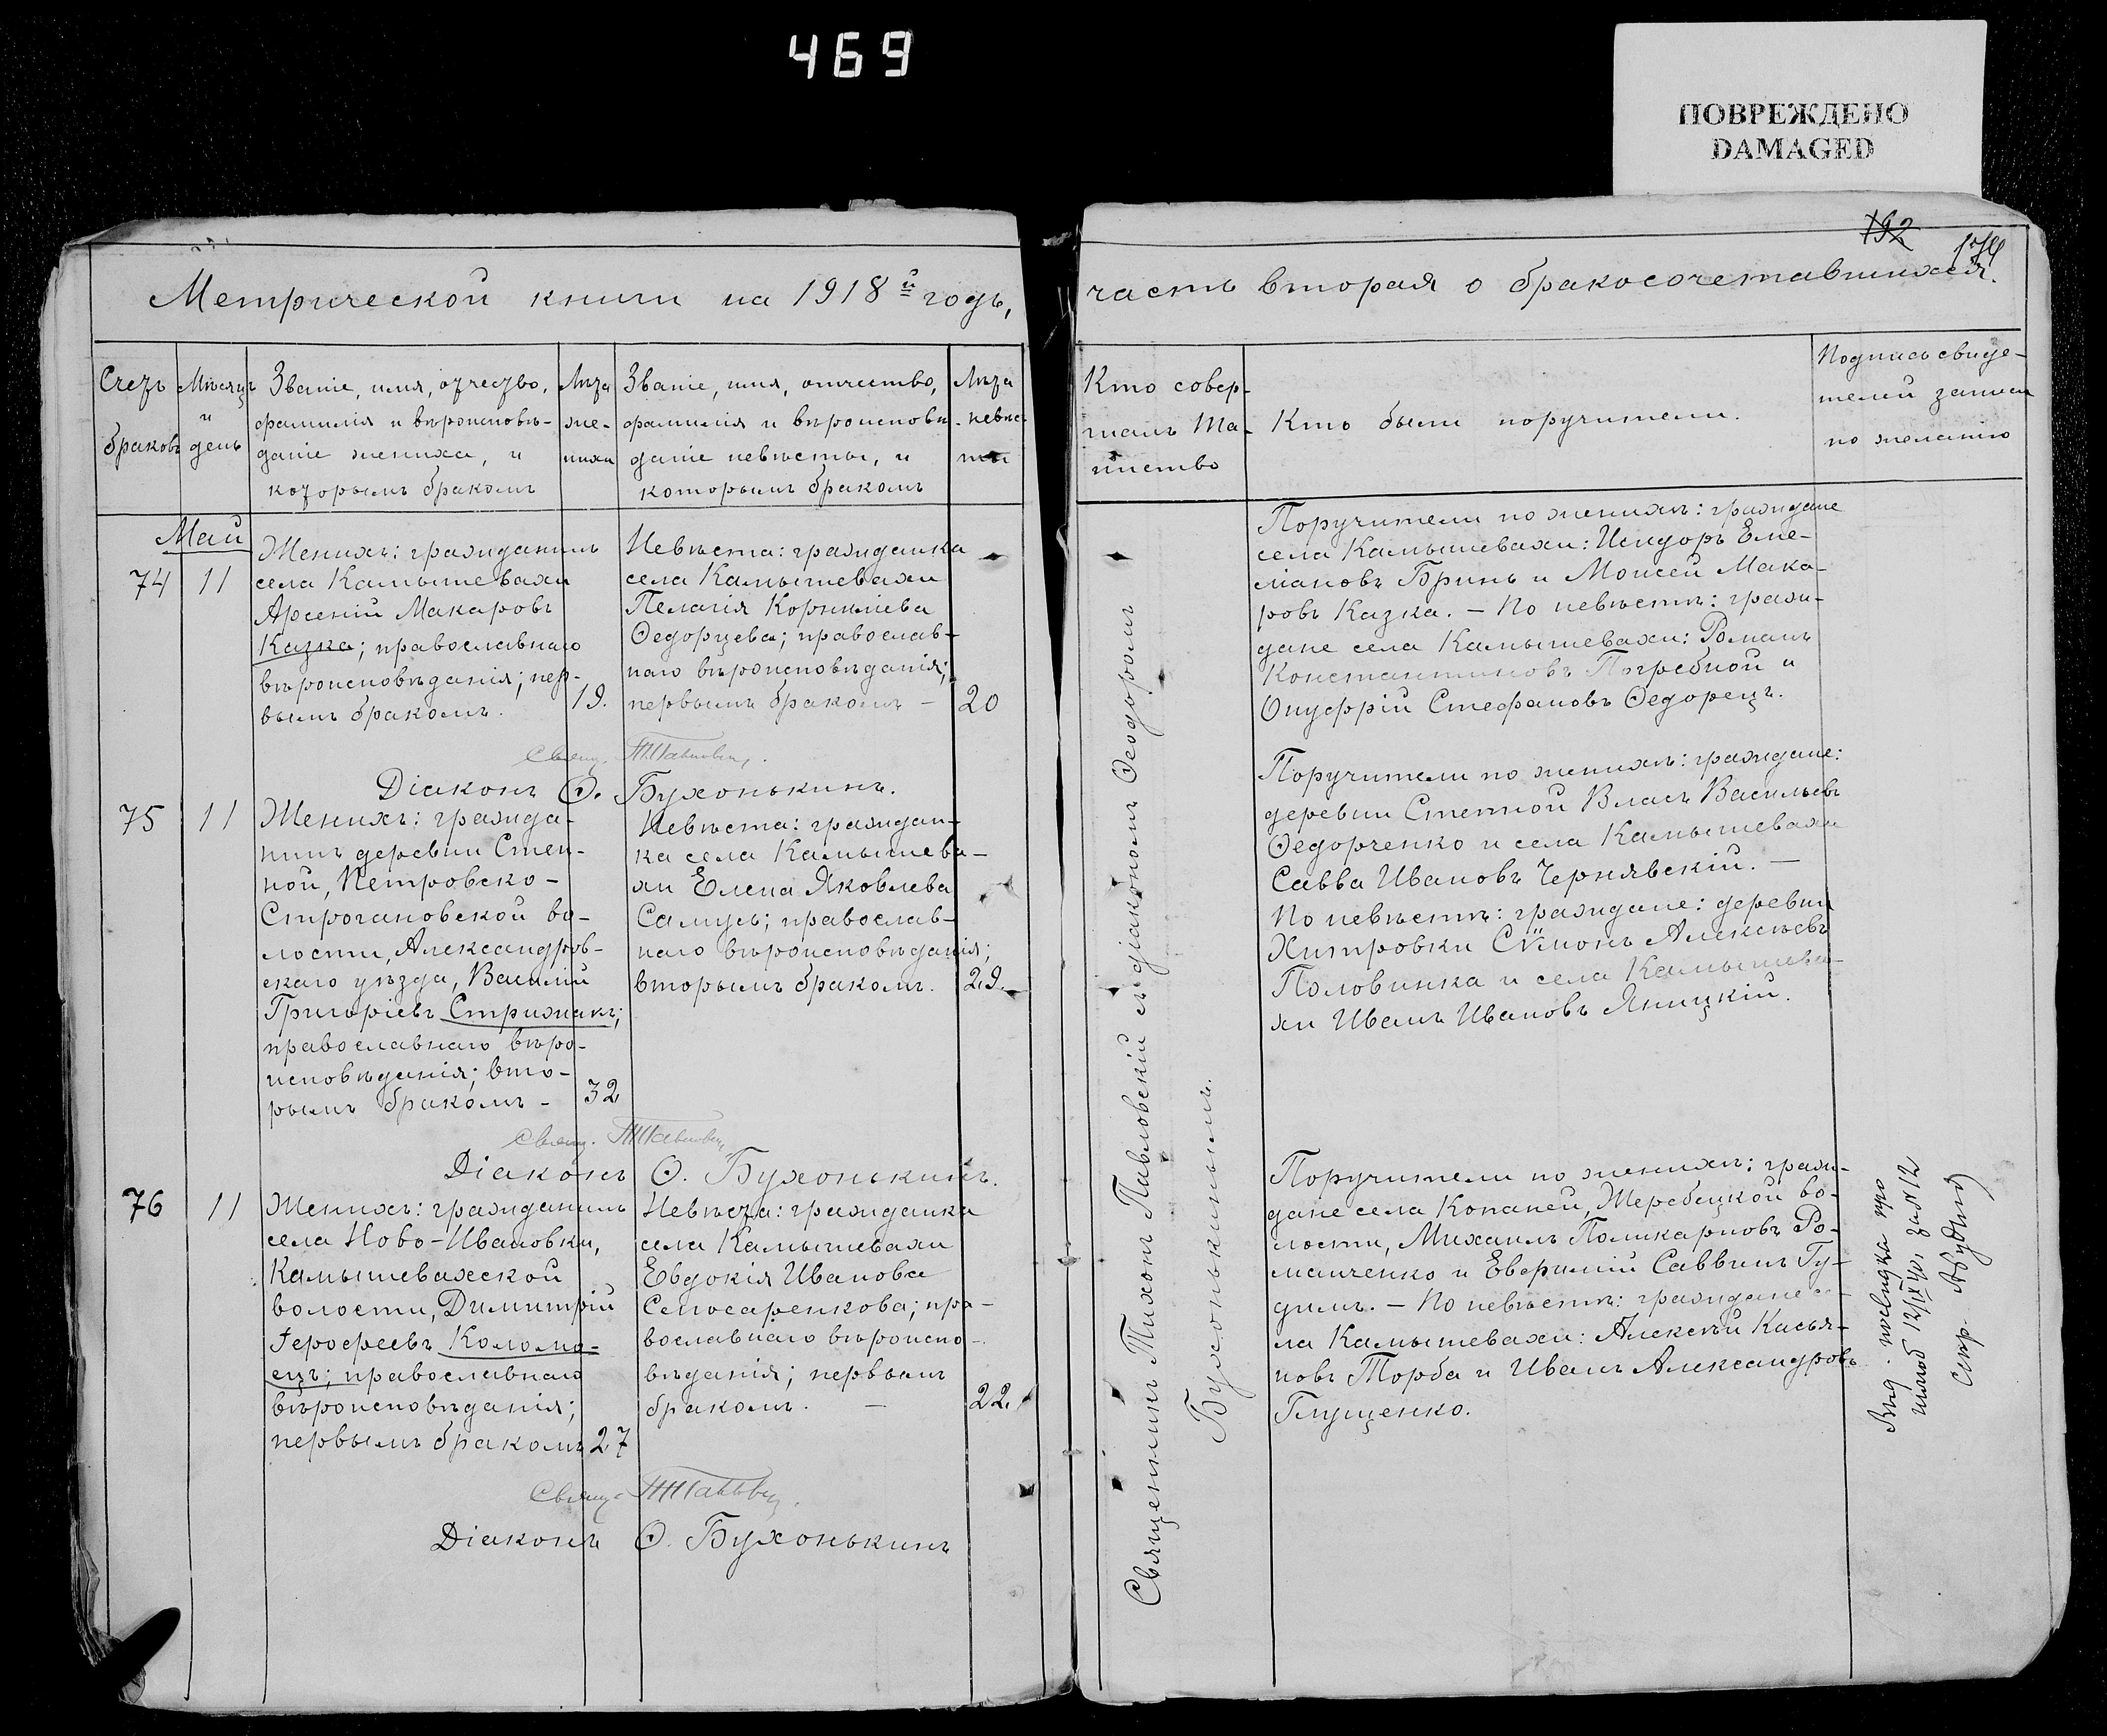 469
ПОВРЕЖДЕНО
DAMAGED
192
174
Метрической книги на 1918й годъ,
часть вторая о бракосочетавшихся.
Счетъ
браковъ
Мѣсяцъ
и
день
Званіе, имя, отчество,
фамилія и вѣроисповѣ-
даніе жениха, и
которымъ бракомъ
Лѣта
же-
ниха
Званіе, имя, отчество,
фамилія и вѣроисповѣ-
даніе невѣсты, и
которымъ бракомъ
Лѣта
невѣс-
ты
Кто совер-
шалъ Та-
инство
Кто были поручители.
Подпись свиде-
телей записи
по желанію
Май
74
11
Женихъ: гражданинъ
села Камышевахи
Арсеній Макаровъ
Казка; православнаго
вѣроисповѣданія; пер-
вымъ бракомъ.
19.
Невѣста: гражданка
села Камышевахи
Пелагія Корниліева
Ѳедорцева; православ-
наго вѣроисповѣданія;
первымъ бракомъ –
20
Поручители по женихѣ: граждане
села Камышевахи: Исидоръ Еме-
ліановъ Бринь и Моисей Мака-
ровъ Казка. – По невѣстѣ: граж-
дане села Камышевахи: Романъ
Константиновъ Погребной и
Онуфрій Стефановъ Ѳедорецъ.
Свящ. Т. Павловскій
Діаконъ Ѳ. Бухонькинъ.
75
11
Женихъ: гражда-
нинъ деревни Степ-
ной, Петровско-
Строгановской во-
лости, Александров-
скаго уѣзда, Василій
Григоріевъ Стрижакъ;
православнаго вѣро-
исповѣданія; вто-
рымъ бракомъ –
32
Невѣста: граждан-
ка села Камышева-
хи Елена Яковлева
Самусь; православ-
наго вѣроисповѣданія;
вторымъ бракомъ.
29.
Поручители по женихѣ: граждане:
деревни Степной Власъ Васильевъ
Ѳедорченко и села Камышевахи
Савва Ивановъ Чернявскій. –
По невѣстѣ: граждане: деревни
Хитровки Сѵмонъ Алексѣевъ
Половинка и села Камышева-
хи Иванъ Ивановъ Яницкій.
Свящ. Т. Павловскій
Діаконъ Ѳ. Бухонькинъ.
76
11
Женихъ: гражданинъ
села Ново-Ивановки,
Камышевахской
волости, Димитрій
Героѳеевъ Коломо-
ецъ; православнаго
вѣроисповѣданія;
первымъ бракомъ
27
Невѣста: гражданка
села Камышевахи
Евдокія Иванова
Слюсаренкова; пра-
вославнаго вѣроиспо-
вѣданія; первымъ
бракомъ. –
22.
Поручители по женихѣ: граж-
дане села Копаней, Жеребецкой во-
лости, Михаилъ Поликарповъ Ро-
манченко и Евфимій Саввинъ Гу-
димъ. – По невѣстѣ: граждане се-
ла Камышевахи: Алексѣй Касья-
новъ Торба и Иванъ Александровъ
Глущенко.
Свящ. Т. Павловскій
Діаконъ Ѳ. Бухонькинъ
Священникъ Тихонъ Павловскій съ діакономъ Ѳеодоромъ
Бухонькинымъ.
Вид. посвідка про
шлюб 12/IX 40 г. за №12